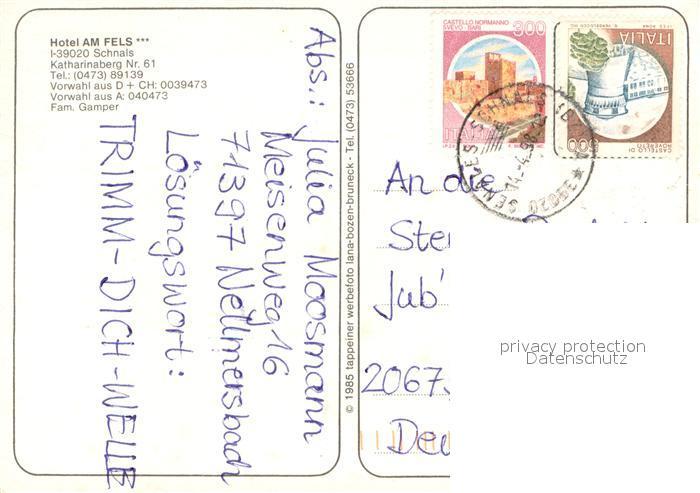 Hotel AM FELS ***
I-39020 Schnals
Katharinaberg Nr. 61
Tel.: (0473) 89139
Vorwahl aus D + CH: 0039473
Vorwahl aus A: 040473
Fam. Gamper
Abs.: Julia Moosmann
Meisenweg 16
71397 Nellmersbach
Lösungswort:
TRIMM-DICH-WELLE
© 1985 tappeiner werbefoto lana-bozen-bruneck - Tel. (0473) 53666
CASTELLO NORMANNO
SVEVO - BARI
300
ITALIA
600
CASTELLO DI
ROVERETO
39020 SENALES SCHNALS
An die
Ste
Jub'
2067
De
privacy protection
Datenschutz